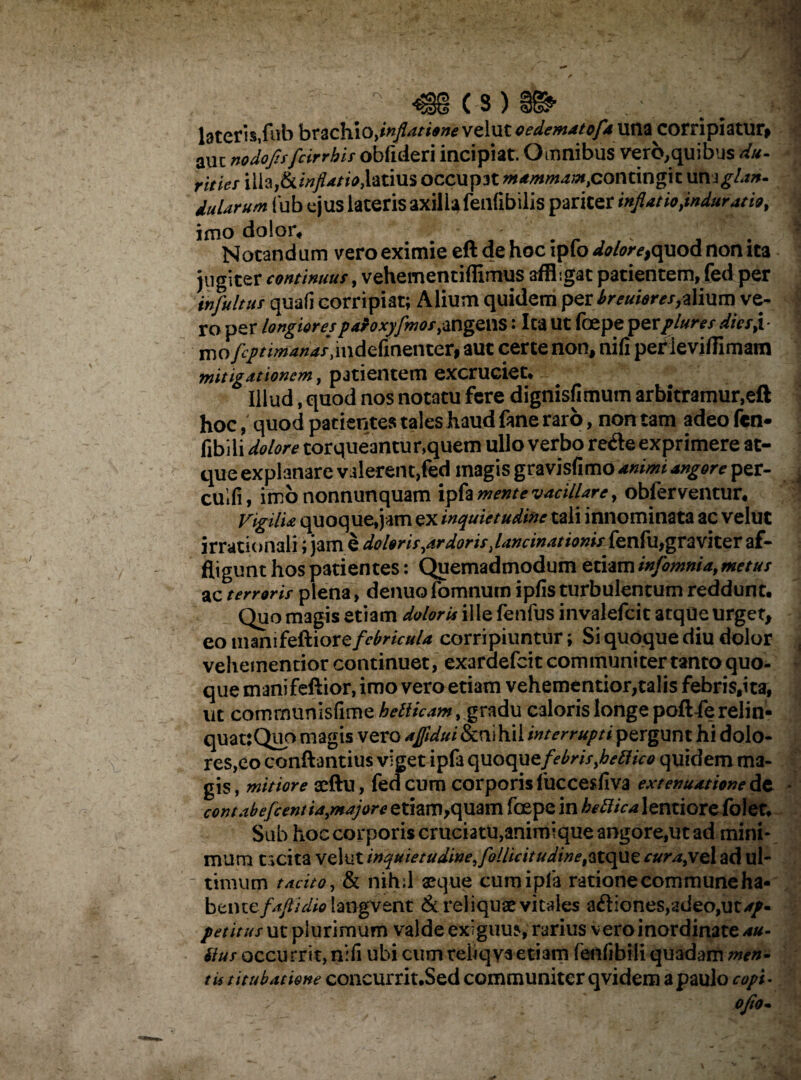 (8)
lateris,ſub brachio,inflatione velut oedematoſa una corripiatur,
aut nodoſis ſcirrhis obſideri incipiat. Omnibus verò,quibus du-
rities illa,& inflatio,latius occupat mammam,contingit una glan-
dularum ſub ejus lateris axilla ſenſibilis pariter inflatio,induratio,
imo dolor.
Notandum vero eximie eſt de hoc ipſo dolore,quod non ita
jugiter continuus, vehementiſſimus affligat patientem, ſed per
inſultus quaſi corripiat; Alium quidem per breuiores,alium ve-
ro per longiores paroxyſmos,angens: Ita ut ſœpe per plures dies,i-
mo ſeptimanas,indeſinenter, aut certe non, niſi per leviſſimam
mitigationem, patientem excruciet.
Illud, quod nos notatu fere dignisſimum arbitramur,eſt
hoc, quod patientes tales haud ſane raro, non tam adeo ſen-
ſibili dolore torqueantur,quem ullo verbo recte exprimere at-
que explanare valerent,ſed magis gravisſimo animi angore per-
culſi, imò nonnunquam ipſa mente vacillare, obſerventur.
Vigiliæ quoque,jam ex inquietudine tali innominata ac velut
irrationali; jam è doloris,ardoris,lancinationis ſenſu,graviter af-
fligunt hos patientes: Quemadmodum etiam inſomnia, metus
ac terroris plena, denuo ſomnum ipſis turbulentum reddunt.
Quo magis etiam doloris ille ſenſus invaleſcit atque urget,
eo manifeſtiore febricula corripiuntur; Si quoque diu dolor
vehementior continuet, exardeſcit communiter tanto quo-
que manifeſtior, imo vero etiam vehementior,talis febris,ita,
ut communisſime hecticam, gradu caloris longe poſt ſe relin-
quat:Quo magis vero aſſidui & nihil interrupti pergunt hi dolo-
res,eo conſtantius viget ipſa quoque febris,hectico quidem ma-
gis, mitiore æſtu, ſed cum corporis ſuccesſiva extenuatione de
contabeſcentia,majore etiam,quam ſœpe in hectica lentiore ſolet.
Sub hoc corporis cruciatu,animique angore,ut ad mini-
mum tacita velut inquietudine,ſollicitudine,atque cura,vel ad ul-
timum tacito, & nihil æque cum ipſa ratione commune ha-
bente faſtidio langvent & reliquæ vitales actiones,adeo,ut ap-
petitus ut plurimum valde exiguus, rarius vero inordinate au-
ctus occurrit, niſi ubi cum reliqvs etiam ſenſibili quadam men-
tis titubatione concurrit.Sed communiter qvidem a paulo copi-
oſio-